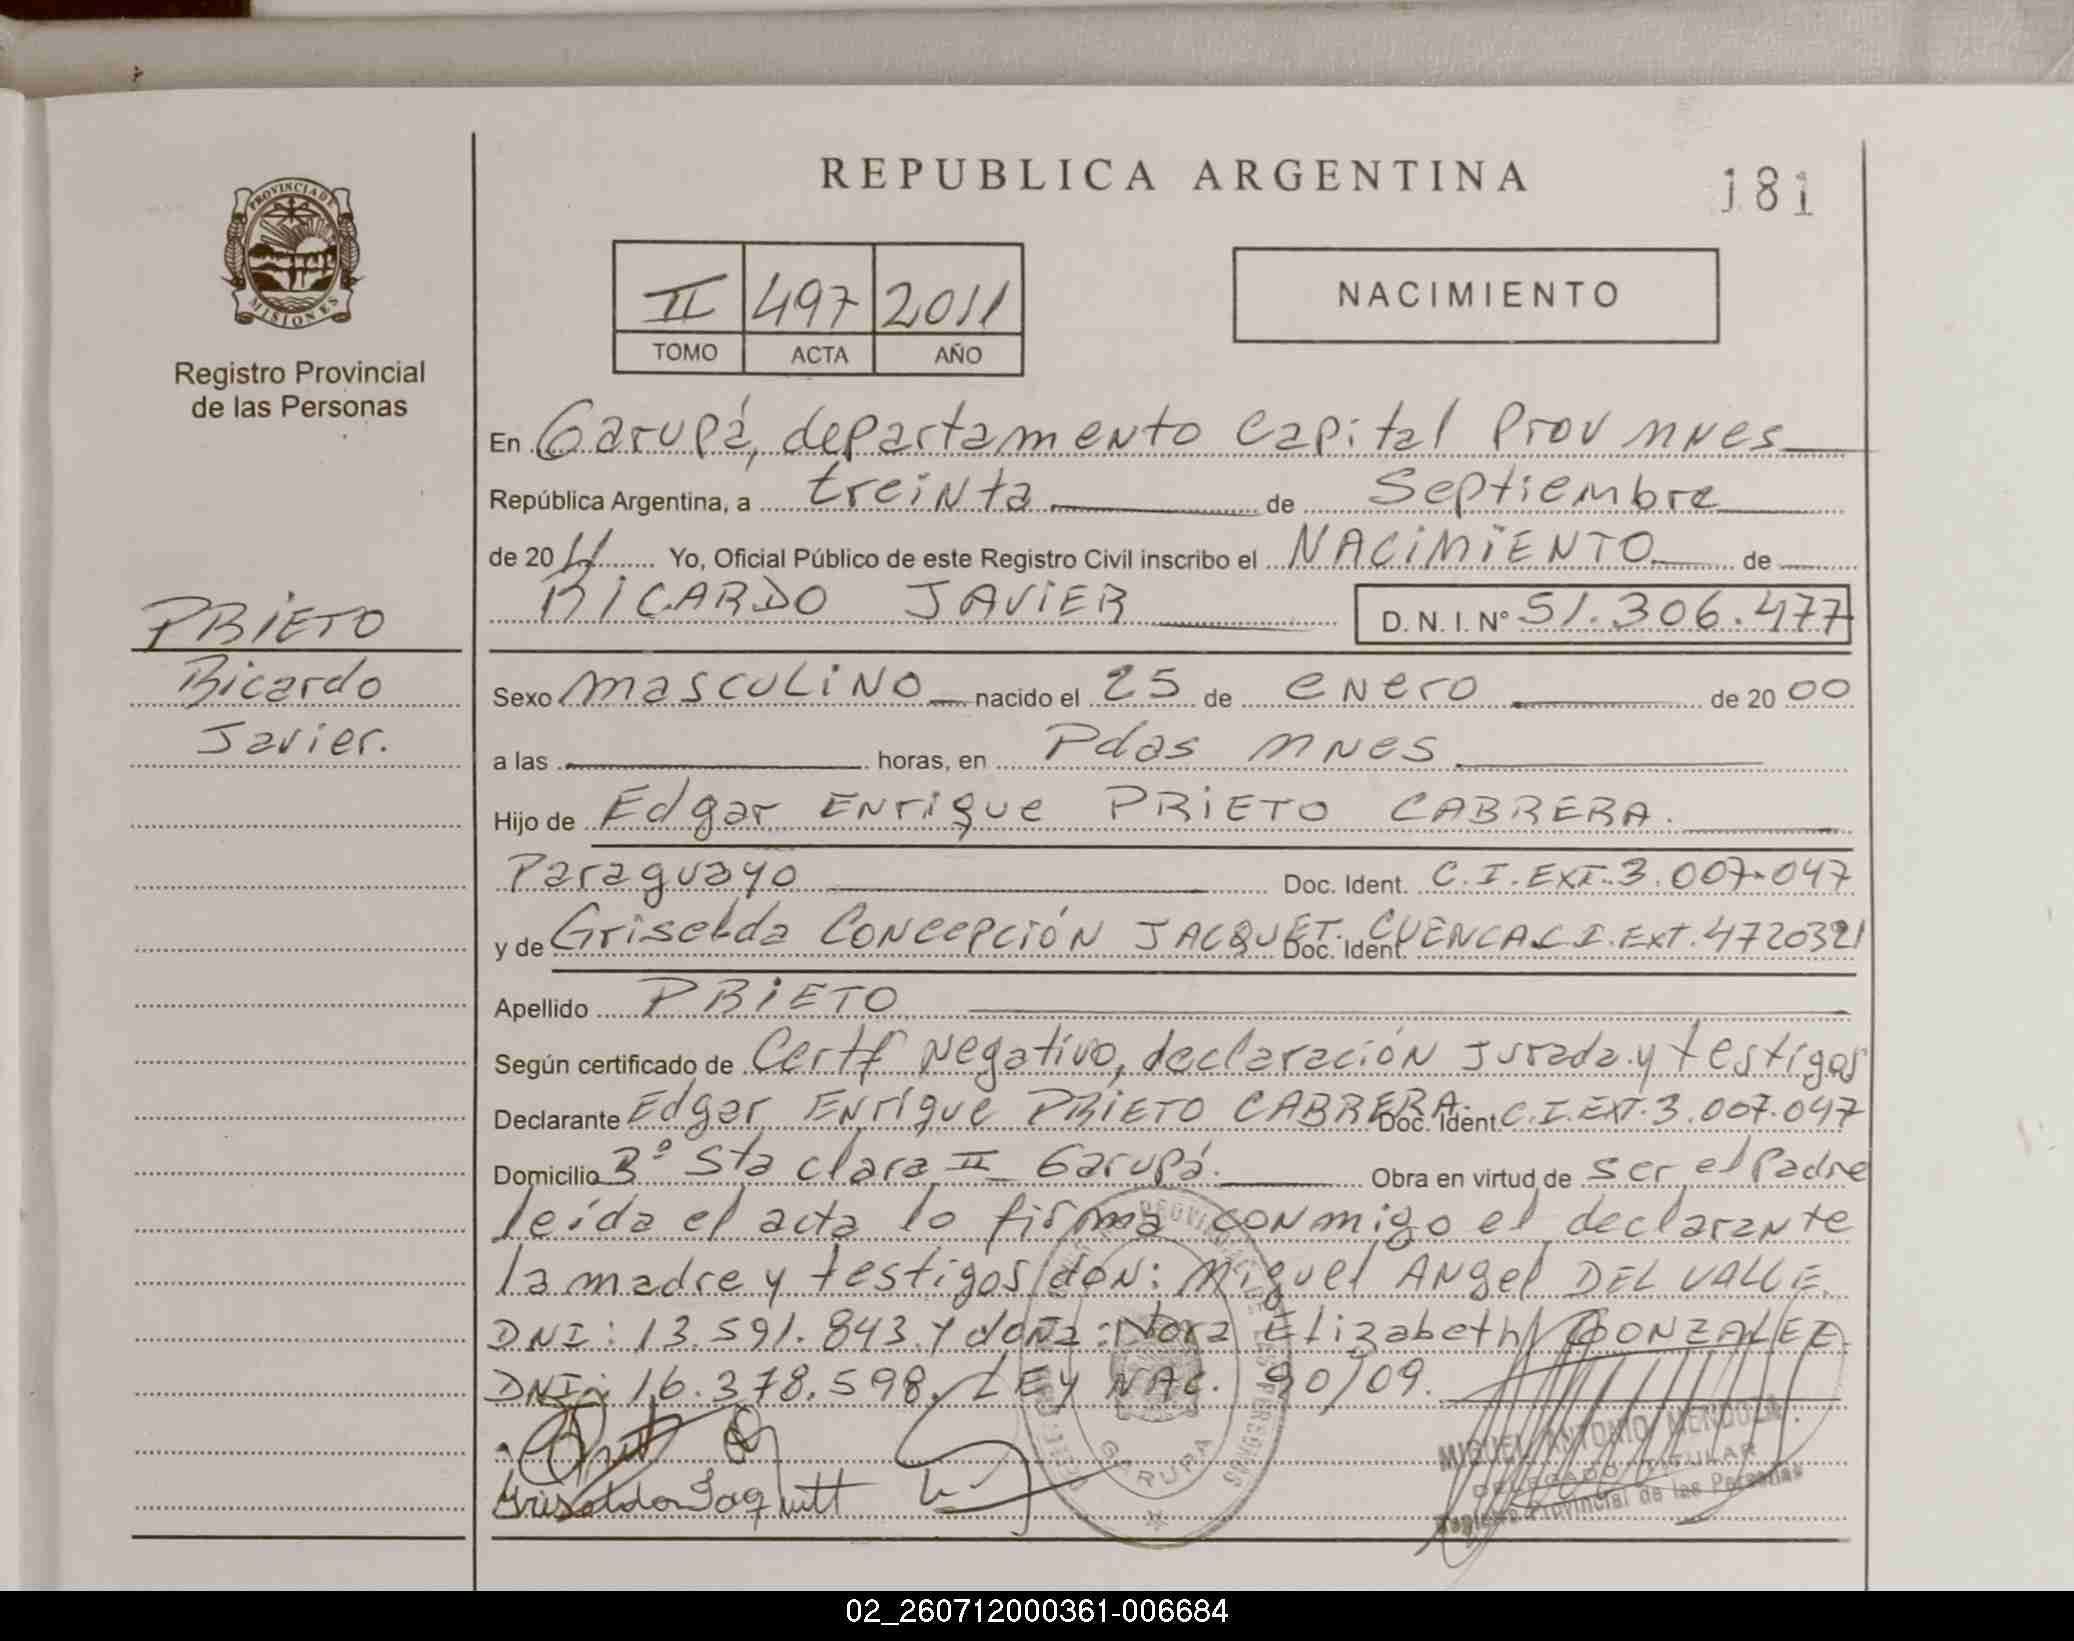 REPUBLICA ARGENTINA
181
PROVINCIA DE
MISIONES
Registro Provincial
de las Personas
II 497 2011
TOMO ACTA AÑO
NACIMIENTO
PRIETO
Ricardo
Javier.
En Garupá, departamento Capital Prov mnes
República Argentina, a treinta de Septiembre
de 2011 Yo, Oficial Público de este Registro Civil inscribo el NACIMIENTO de
RICARDO JAVIER D. N. I. Nº 51.306.477
Sexo masculino nacido el 25 de enero de 20 00
a las horas, en Pdas mnes
Hijo de Edgar Enrique PRIETO CABRERA.
Paraguayo Doc. Ident. C.I.EXT.3.007.047
y de Griselda Concepción JACQUET CUENCA Doc. Ident. C.I.EXT.4720321
Apellido PRIETO
Según certificado de Certf negativo, declaración Jurada y testigos
Declarante Edgar Enrique PRIETO CABRERA. Doc. Ident C.I.EXT.3.007.047
Domicilio Bº Sta Clara II Garupá. Obra en virtud de ser el Padre
leída el acta lo firma conmigo el declarante
la madre y testigos don: Miguel Angel DEL VALLE.
DNI: 13.591.843 y doña: Nora Elizabeth GONZALEZ
DNI: 16.378.598. LEY NAC. 90/09.
GARUPA
MIGUEL ANTONIO MENDOZA
DELEGADO TITULAR
Registro Provincial de las Personas
02_260712000361-006684